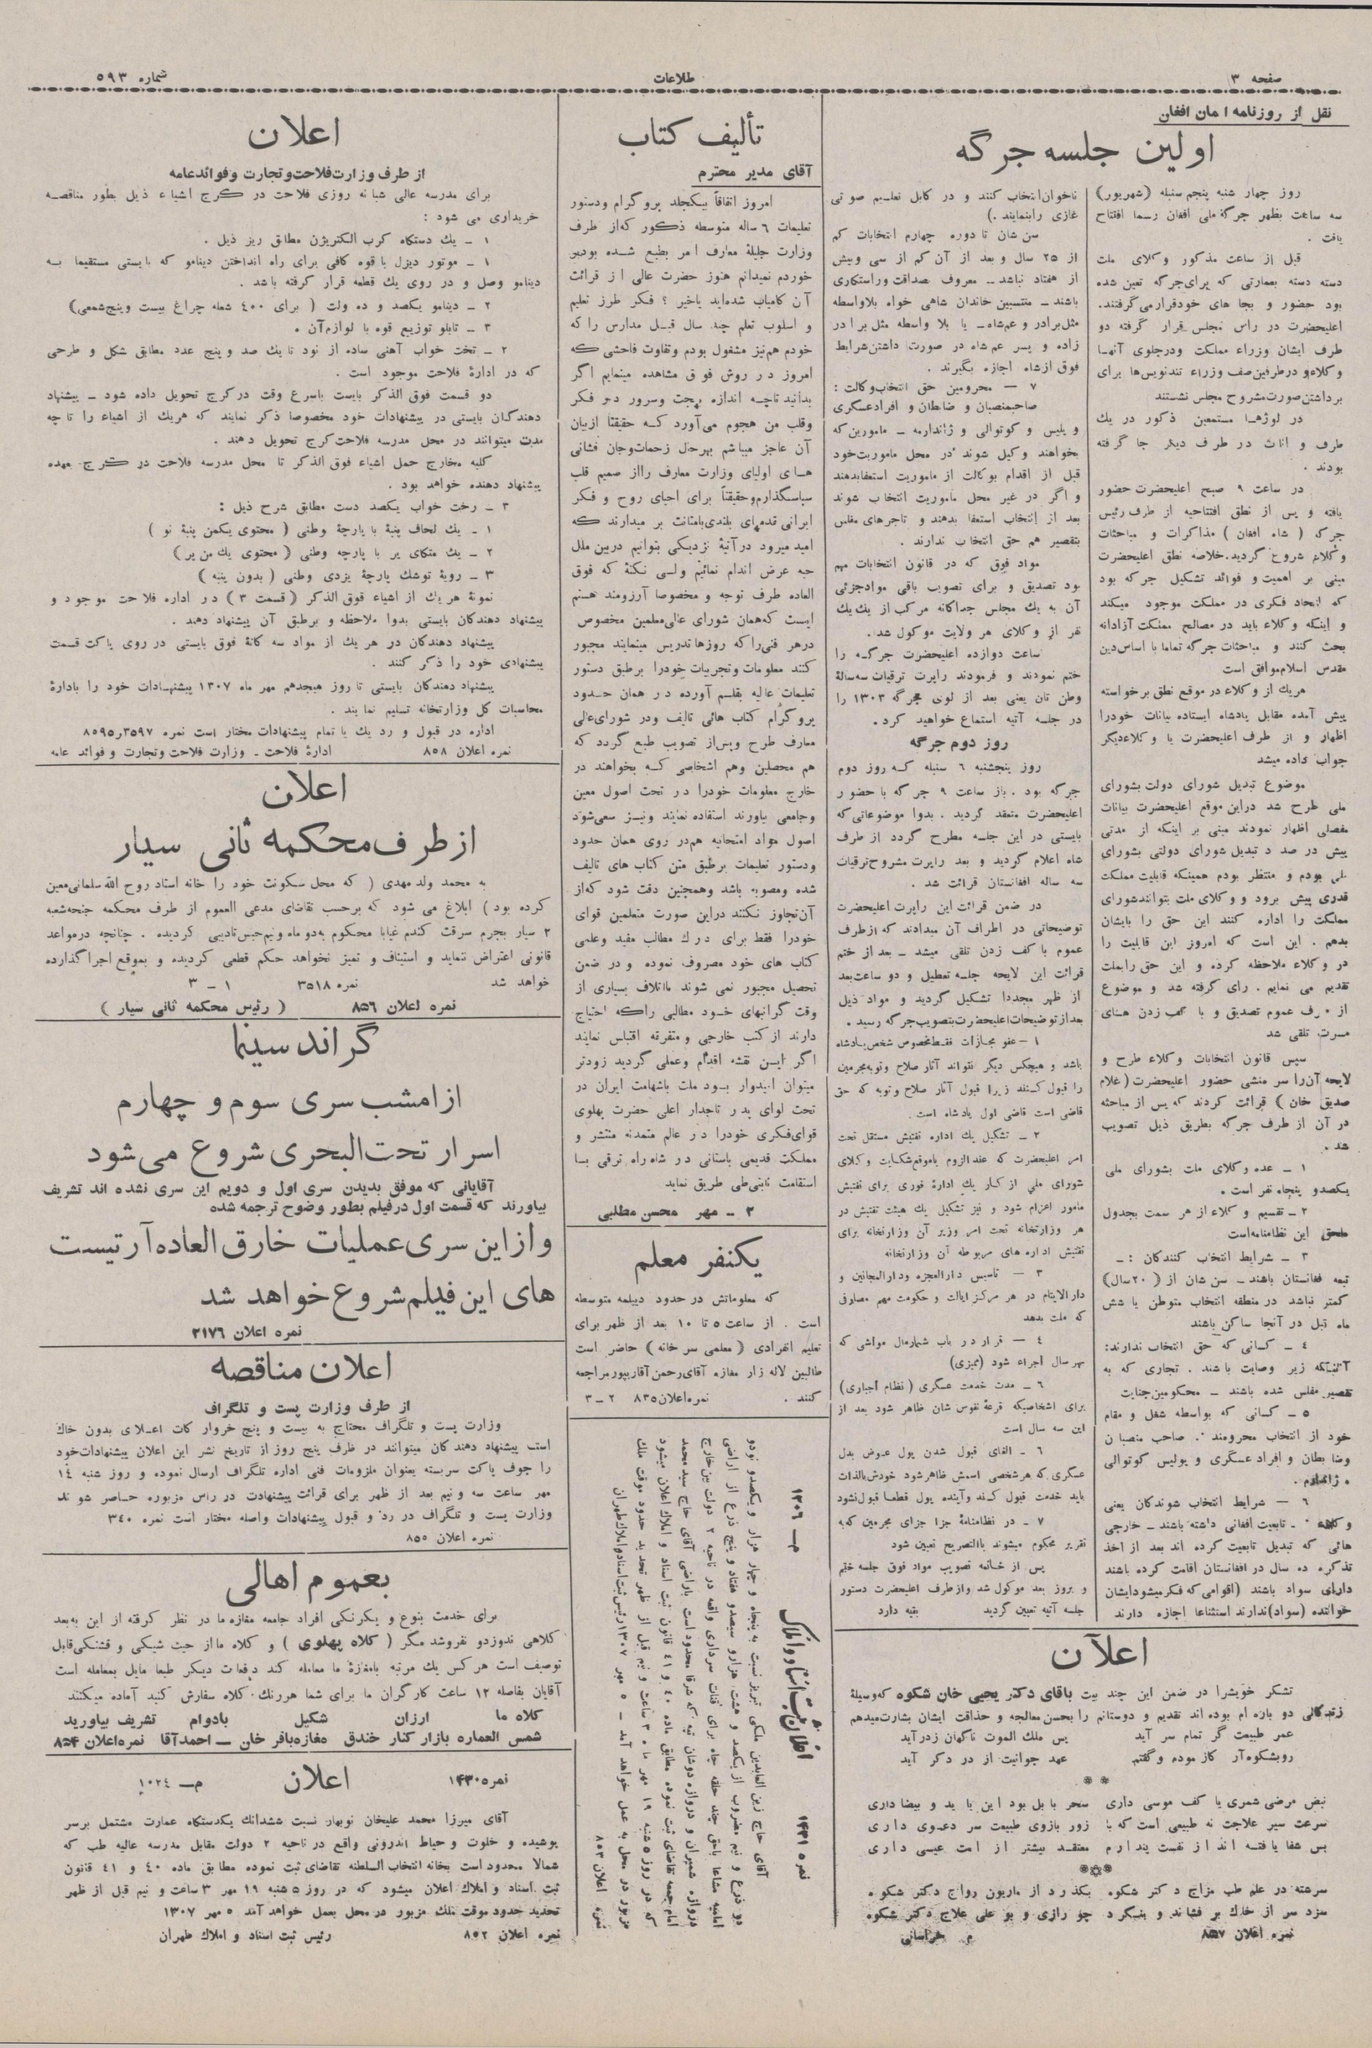 صفحه ۳
طلاعات
شماره ۵۹۳
نقل از روزنامه امان افغان
اولین جلسه جرگه
روز چهار شنبه پنجم سنبله (شهریور)
سه ساعت بظهر جرگۀ ملی افغان رسما افتتاح
یافت .
قبل از ساعت مذکور وکلای ملت
دسته دسته بعمارتی که برای جرگه تعین شده
بود حضور و بجا های خود قرار می گرفتند.
اعلیحضرت در راس مجلس قرار گرفته دو
طرف ایشان وزراء مملکت و در جلوی آنها
وکلاء و در طرفین صف وزراء تندنویس ها برای
برداشتن صورت مشروح مجلس نشستند
در لوژها مستمعین ذکور در یك
طرف و اناث در طرف دیگر جا گرفته
بودند .
در ساعت ۹ صبح اعلیحضرت حضور
یافته و پس از نطق افتتاحیه از طرف رئیس
جرگه ( شاه افغان ) مذاکرات و مباحثات
وکلاء شروع گردید. خلاصه نطق اعلیحضرت
مبنی بر اهمیت و فوائد تشکیل جرگه بود
که اتحاد فکری در مملکت موجود میکند
و اینکه وکلاء باید در مصالح مملکت آزادانه
بحث کنند و مباحثات جرگه تماما با اساس دین
مقدس اسلام موافق است
هریك از وکلاء در موقع نطق برخواسته
پیش آمده مقابل پادشاه ایستاده بیانات خودرا
اظهار و از طرف اعلیحضرت یا وکلاء دیگر
جواب داده میشد
موضوع تبدیل شورای دولت بشورای
ملی طرح شد در این موقع اعلیحضرت بیانات
مفصلی اظهار نمودند مبنی بر اینکه از مدتی
پیش در صدد تبدیل شورای دولتی بشورای
ملی بودم و منتظر بودم همینکه قابلیت مملکت
قدری پیش برود و وکلای ملت بتوانند شورای
مملکت را اداره کنند این حق را بایشان
بدهم . این است که امروز این قابلیت را
در وکلاء ملاحظه کرده و این حق را بملت
تقدیم می نمایم . رای گرفته شد و موضوع
از طرف عموم تصدیق و با کف زدن های
مسرت تلقی شد
سپس قانون انتخابات وکلاء طرح و
لایحه آن را سر منشی حضور اعلیحضرت (غلام
صدیق خان ) قرائت کردند که پس از مباحثه
در آن از طرف جرگه بطریق ذیل تصویب
شد .
۱ – عده وکلای ملت بشورای ملی
یکصدو پنجاه نفر است .
۲– تقسیم و کلاء از هر سمت بجدول
ملحق این نظامنامه است
۳ – شرایط انتخاب کنندگان : –
تبعه فغانستان باشند – سن شان از ( ۲۰سال)
کمتر نباشد در منطقه انتخاب متوطن یا شش
ماه قبل در آنجا ساکن باشند
۴ – کسانی که حق انتخاب ندارند:
آنانیکه زیر وصایت باشند . تجاری که به
تقصیر مفلس شده باشند – محکومین جنایت
۵ – کسانی که بواسطه شغل و مقام
خود از انتخاب محرومند . صاحب منصبان
وضابطان و افراد عسکری و پولیس کوتوالی
و ژاندارم.
۶ – شرایط انتخاب شوندگان یعنی
وکلاء . – تابعیت افغانی داشته باشند – خارجی
هائی که تبدیل تابعیت کرده اند بعد از اخذ
تذکره ده سال در افغانستان اقامت کرده باشند
دارای سواد باشند (اقوامی که فکر میشود ایشان
خواننده (سواد) ندارند استثناءا اجازه دارند
ناخوان انتخاب کنند و در کابل تعلیم صوتی
غازی را بنمایند .)
سن شان تا دوره چهارم انتخابات کم
از ۲۵ سال و بعد از آن کم از سی و بیش
از هفتاد نباشد.. معروف بصداقت و راستکاری
باشند – منتسبین خاندان شاهی خواه بلاواسطه
مثل برادر و عم شاه – یا بلا واسطه مثل برادر
زاده و پسر عم شاه در صورت داشتن شرایط
فوق از شاه اجازه بگیرند .
۷ – محرومین حق انتخاب وکالت :
صاحبمنصبان و ضابطان و افراد عسکری
و پلیس و کوتوالی و ژاندارمه – مامورین که
بخواهند وکیل شوند در محل ماموریت خود
قبل از اقدام بوکالت از ماموریت استعفا بدهند
و اگر در غیر محل ماموریت انتخاب شوند
بعد از انتخاب استعفا بدهند و تاجرهای مفلس
بتقصیر هم حق انتخاب ندارند .
مواد فوق که در قانون انتخابات مهم
بود تصدیق و برای تصویب باقی مواد جزئی
آن به یك مجلس جداگانه مرکب از یك یك
نفر از وکلای هر ولایت موکول شد .
ساعت دوازده اعلیحضرت جرگه را
ختم نمودند و فرمودند راپرت ترقیات سه سالۀ
وطن تان یعنی بعد از لوی جرگه ۱۳۰۳ را
در جلسه آتیه استماع خواهید کرد .
روز دوم جرگه
روز پنجشنبه ۶ سنبله که روز دوم
جرگه بود . باز ساعت ۹ جرگه با حضور
اعلیحضرت منعقد گردید . بدوا موضوعاتی که
بایستی در این جلسه مطرح گردد از طرف
شاه اعلام گردید و بعد راپرت مشروح ترقیات
سه ساله افغانستان قرائت شد .
در ضمن قرائت این راپرت اعلیحضرت
توضیحاتی در اطراف آن میدادند که از طرف
عموم با کف زدن تلقی میشد – بعد از ختم
قرائت این لایحه جلسه تعطیل و دو ساعت بعد
از ظهر مجددا تشکیل گردید و مواد ذیل
بعد از توضیحات اعلیحضرت بتصویب جرگه رسید .
۱ – عفو مجازات فقط مخصوص شخص پادشاه
باشد و هیچکس دیگر نتواند آثار صلاح و توبه مجرمین
را قبول کنند زیرا قبول آثار صلاح و توبه که حق
قاضی است قاضی اول پادشاه است .
۲ – تشکیل یك اداره تفتیش مستقل تحت
امر اعلیحضرت که عندالزوم با موقع شکایت وکلای
شورای ملی از کنار یك ادارۀ فوری برای تفتیش
مامور اعزام شود و نیز تشکیل یك هیئت تفتیش در
هر وزارتخانه تحت امر وزیر آن وزارتخانه برای
تفتیش اداره های مربوطه آن وزارتخانه
۳ – تاسیس دارالعجزه و دارالمجانین و
دارالایتام در هر مرکز ایالت و حکومت مهم مصارفی
که ملت بدهد
۴ – قرار در باب شمار مال مواشی که
سر سال اجراء شود (ممیزی)
۶ – مدت خدمت عسکری ( نظام اجباری)
برای اشخاصیکه قرعۀ نفوس شان ظاهر شود بعد از
این سه سال است
۶ – الغای قبول شدن پول عوض بدل
عسکری که هر شخصی اسمش ظاهر شود خودش بالذات
باید خدمت قبول کند و آینده پول قطعا قبول نشود
۷ – در نظامنامۀ جزا جزای مجرمین که به
تقریر محکوم میشوند باالتصریح تعیین شود
پس از خاتمه تصویب مواد فوق جلسه ختم
و بروز بعد موکول شد و از طرف اعلیحضرت دستور
جلسه آتیه تعیین گردید بقیه دارد
اعلان
تشکر خویشرا در ضمن این چند بیت باقای دکتر یحیی خان شکوه که وسیلۀ
زندگانی دو باره ام بوده اند تقدیم و دوستانم را بحسن معالجه و حذاقت ایشان بشارت میدهم
عمر طبیعت گر تمام سر آید پس ملك الموت ناگهان زدر آید
رو بشکوه آر کازموده و گفتم عهد جوانیت از در دگر آید
نبض مرضی شمری یا کف موسی داری سحر بابل بود این یا ید و بیضا داری
سرعت سیر علاجت نه طبیعی است که با زور بازوی طبیعت سر دعوی داری
بس شفا یافته اند از نفست پندارم معتقد بیشتر از امت عیسی داری
سرشته در علم طب مزاج دکتر شکوه بگذرد از ماریون رواج دکتر شکوه
سزد سر از خاك بر فشاند و بنگرد چو رازی و بو علی علاج دکتر شکوه
نمره اعلان ۸۵۷ م خراسانی
تألیف کتاب
آقای مدیر محترم
امروز اتفاقاً بیکجلد پروگرام و دستور
تعلیمات ۶ ساله متوسطه ذکور که از طرف
وزارت جلیلۀ معارف امر بطبع شده بود بر
خوردم نمیدانم هنوز حضرت عالی از قرائت
آن کامیاب شده اید یا خیر ؟ فکر طرز تعلیم
و اسلوب تعلم چند سال قبل مدارس را که
خودم هم نیز مشغول بودم و تفاوت فاحشی که
امروز در روش فوق مشاهده مینمایم اگر
بدانید تا چه اندازه بهجت و سرور در فکر
وقلب من هجوم می آورد که حقیقتاً از بیان
آن عاجز میباشم بهر حال زحمات و جان فشانی
های اولیای وزارت معارف را از صمیم قلب
سپاسگذارم و حقیقتاً برای احیای روح و فکر
ایرانی قدمهای بلندی با متانت بر میدارند که
امید میرود در آتیۀ نزدیکی بتوانیم در بین ملل
حیه عرض اندام نمائیم ولی نکتۀ که فوق
العاده طرف توجه و مخصوصا آرزومند هستم
اینست که همان شورای عالی معلمین مخصوص
در هر فنی را که روزها تدریس مینمایند مجبور
کنند معلومات و تجربیات خودرا بر طبق دستور
تعلیمات عالیه بقلم آورده در همان حدود
پروگرام کتاب هائی تالیف و در شورای عالی
معارف طرح و پس از تصویب طبع گردد که
هم محصلین و هم اشخاصی که بخواهند در
خارج معلومات خودرا در تحت اصول معین
وجامعی بیاورند استفاده نمایند و نیز سعی شود
اصول مواد امتحانیه هم در روی همان حدود
ودستور تعلیمات بر طبق متن کتاب های تالیف
شده ومصوبه باشد وهمچنین دقت شود که از
آن تجاوز نکنند در این صورت متعلمین قوای
خودرا فقط برای درك مطالب مفید و علمی
کتاب های خود مصروف نموده و در ضمن
تحصیل مجبور نمی شوند با اتلاف بسیاری از
وقت گرانبهای خود مطالبی را که احتیاج
دارند از کتب خارجی و متفرقه اقتباس نمایند
اگر این نقشه اقدام وعملی گردید زودتر
میتوان امیدوار بود ملت باشهامت ایران در
تحت لوای پدر تاجدار اعلی حضرت پهلوی
قوای فکری خودرا در عالم متمدنه منتشر و
مملکت قدیمی باستانی در شاه راه ترقی با
استقامت ثابتی طی طریق نماید
۲ – مهر محسن مطلبی
یکنفر معلم
که معلوماتش در حدود دیپلمه متوسطه
است . از ساعت ۵ تا ۱۰ بعد از ظهر برای
تعلیم انفرادی ( معلمی سر خانه ) حاضر است
طالبین لاله زار مغازه آقای رحمن آقاپیپور مراجعه
کنند . نمره اعلان ۸۳۵ ۲–۳
نمره ۱۴۳۱۵ اعلان ثبت اسناد و املاک م– ۱۳۰۶
آقای حاج زین العابدین ملکی تبریز نسبت به پنجاه و چهار هزار و یکصدو نودو
دو ذرع و نیم مضروب از یکصد و هشت هزارو سیصدو هفتاد و پنج ذرع از اراضی
امامیه مشاعا باحق چند حلقه چاه برای قنات سرداری واقعه در ناحیه ۲ دولت بین خارج
دروازه شمیران و دروازه دوشان تپه که شرقا محدود است باراضی آقای حاج سید محمد
امام جمعه تقاضای ثبت نموده مطابق ماده ۴۰ و ۴۱ قانون ثبت اسناد و املاك اعلان میشود
که در روز ۵ شنبه ۱۹ مهر ماه ۳ ساعت و نیم قبل از ظهر تحدید حدود موقت ملك
مزبور در محل به عمل خواهد آمد – ۵ مهر ۱۳۰۷ رئیس ثبت اسناد و املاك طهران
نمره اعلان ۸۵۳
اعلان
از طرف وزارت فلاحت و تجارت و فوائد عامه
برای مدرسه عالی شبانه روزی فلاحت در کرج اشیاء ذیل بطور مناقصه
خریداری می شود :
۱ – یك دستگاه کرب الکتریژن مطابق ریز ذیل .
۱ – موتور دیزل با قوه کافی برای راه انداختن دینامو که بایستی مستقیما به
دینامو وصل و در روی یك قطعه قرار گرفته باشد .
۲ – دینامو یکصد و ده ولت ( برای ۴۰۰ شعله چراغ بیست وپنج شمعی)
۳ – تابلو توزیع قوه با لوازم آن .
۲ – تخت خواب آهنی ساده از نود تا یك صد و پنج عدد مطابق شکل و طرحی
که در ادارۀ فلاحت موجود است .
دو قسمت فوق الذکر بایست باسرع وقت در کرج تحویل داده شود – پیشنهاد
دهندگان بایستی در پیشنهادات خود مخصوصا ذکر نمایند که هریك از اشیاء را تا چه
مدت میتوانند در محل مدرسه فلاحت کرج تحویل دهند .
کلیه مخارج حمل اشیاء فوق الذکر تا محل مدرسه فلاحت در کرج بعهده
پیشنهاد دهنده خواهد بود .
۳ – رخت خواب یکصد دست مطابق شرح ذیل :
۱ – یك لحاف پنبۀ با پارچۀ وطنی ( محتوی یکمن پنبۀ نو )
۲ – یك متکای پر با پارچه وطنی ( محتوی یك من پر)
۳ – رویۀ توشك پارچۀ یزدی وطنی ( بدون پنبه )
نمونۀ هریك از اشیاء فوق الذکر ( قسمت ۳ ) در اداره فلاحت موجود و
پیشنهاد دهندگان بایستی بدوا ملاحظه و برطبق آن پیشنهاد دهند .
پیشنهاد دهندگان در هریك از مواد سه گانۀ فوق بایستی در روی پاکت قسمت
پیشنهادی خود را ذکر کنند .
پیشنهاد دهندگان بایستی تا روز هیجدهم مهر ماه ۱۳۰۷ پیشنهادات خود را بادارۀ
محاسبات کل وزارتخانه تسلیم نمایند .
اداره در قبول و رد یك یا تمام پیشنهادات مختار است نمره ۳۵۹۷ر۸۵۹۵
نمره اعلان ۸۵۸ ادارۀ فلاحت – وزارت فلاحت و تجارت و فوائد عامه
اعلان
از طرف محکمه ثانی سیار
به محمد ولد مهدی ( که محل سکونت خود را خانه استاد روح الله سلمانی معین
کرده بود ) ابلاغ می شود که برحسب تقاضای مدعی العموم از طرف محکمه جنحه شعبه
۲ سیار بجرم سرقت گندم غیابا محکوم به دو ماه و نیم حبس تادیبی گردیده . چنانچه در مواعد
قانونی اعتراض ننماید و استیناف و تمیز نخواهد حکم قطعی گردیده و بموقع اجرا گذارده
خواهد شد نمره ۳۵۱۸ ۱ – ۳
نمره اعلان ۸۵۶ ( رئیس محکمه ثانی سیار )
گراند سینما
از امشب سری سوم و چهارم
اسرار تحت البحری شروع می شود
آقایانی که موفق بدیدن سری اول و دویم این سری نشده اند تشریف
بیاورند که قسمت اول در فیلم بطور وضوح ترجمه شده
و از این سری عملیات خارق العاده آرتیست
های این فیلم شروع خواهد شد
نمره اعلان ۲۱۷۶
اعلان مناقصه
از طرف وزارت پست و تلگراف
وزارت پست و تلگراف محتاج به بیست و پنج خروار کات اعلای بدون خاك
است پیشنهاد دهندگان میتوانند در ظرف پنج روز از تاریخ نشر این اعلان پیشنهادات خود
را جوف پاکت سربسته بعنوان ملزومات فنی اداره تلگراف ارسال نموده و روز شنبه ۱۴
مهر ساعت سه و نیم بعد از ظهر برای قرائت پیشنهادت در راس مزبوره حاضر شوند
وزارت پست و تلگراف در رد و قبول پیشنهادات واصله مختار است نمره ۳۴۰
نمره اعلان ۸۵۵
بعموم اهالی
برای خدمت بنوع و یکرنگی افراد جامعه مغازه ما در نظر گرفته از این به بعد
کلاهی ندوزدو نفروشد مگر ( کلاه پهلوی ) و کلاه ما از حیث شیکی و قشنگی قابل
توصیف است هر کس یك مرتبه بامغازۀ ما معامله کند دفعات دیگر طبعا مایل بمعامله است
آقایان بفاصله ۱۲ ساعت کارگران ما برای شما هررنگ کلاه سفارش کنید آماده میکنند
کلاه ما ارزان شکیل بادوام تشریف بیاورید
شمس العماره بازار کنار خندق مغازه باقر خان – احمد آقا نمره اعلان ۸۵۴
نمره ۱۴۳۰۵ اعلان م– ۱۰۲۴
آقای میرزا محمد علیخان نوبهار نسبت ششدانك یکدستگاه عمارت مشتمل برسر
پوشیده و خلوت و حیاط اندرونی واقع در ناحیه ۲ دولت مقابل مدرسه عالیه طب که
شمالا محدود است بخانه انتخاب السلطنه تقاضای ثبت نموده مطابق ماده ۴۰ و ۴۱ قانون
ثبت اسناد و املاك اعلان میشود که در روز ۵ شنبه ۱۹ مهر ۳ ساعت و نیم قبل از ظهر
تحدید حدود موقت ملك مزبور در محل بعمل خواهد آمد ۵ مهر ۱۳۰۷
نمره اعلان ۸۵۲ رئیس ثبت اسناد و املاك طهران